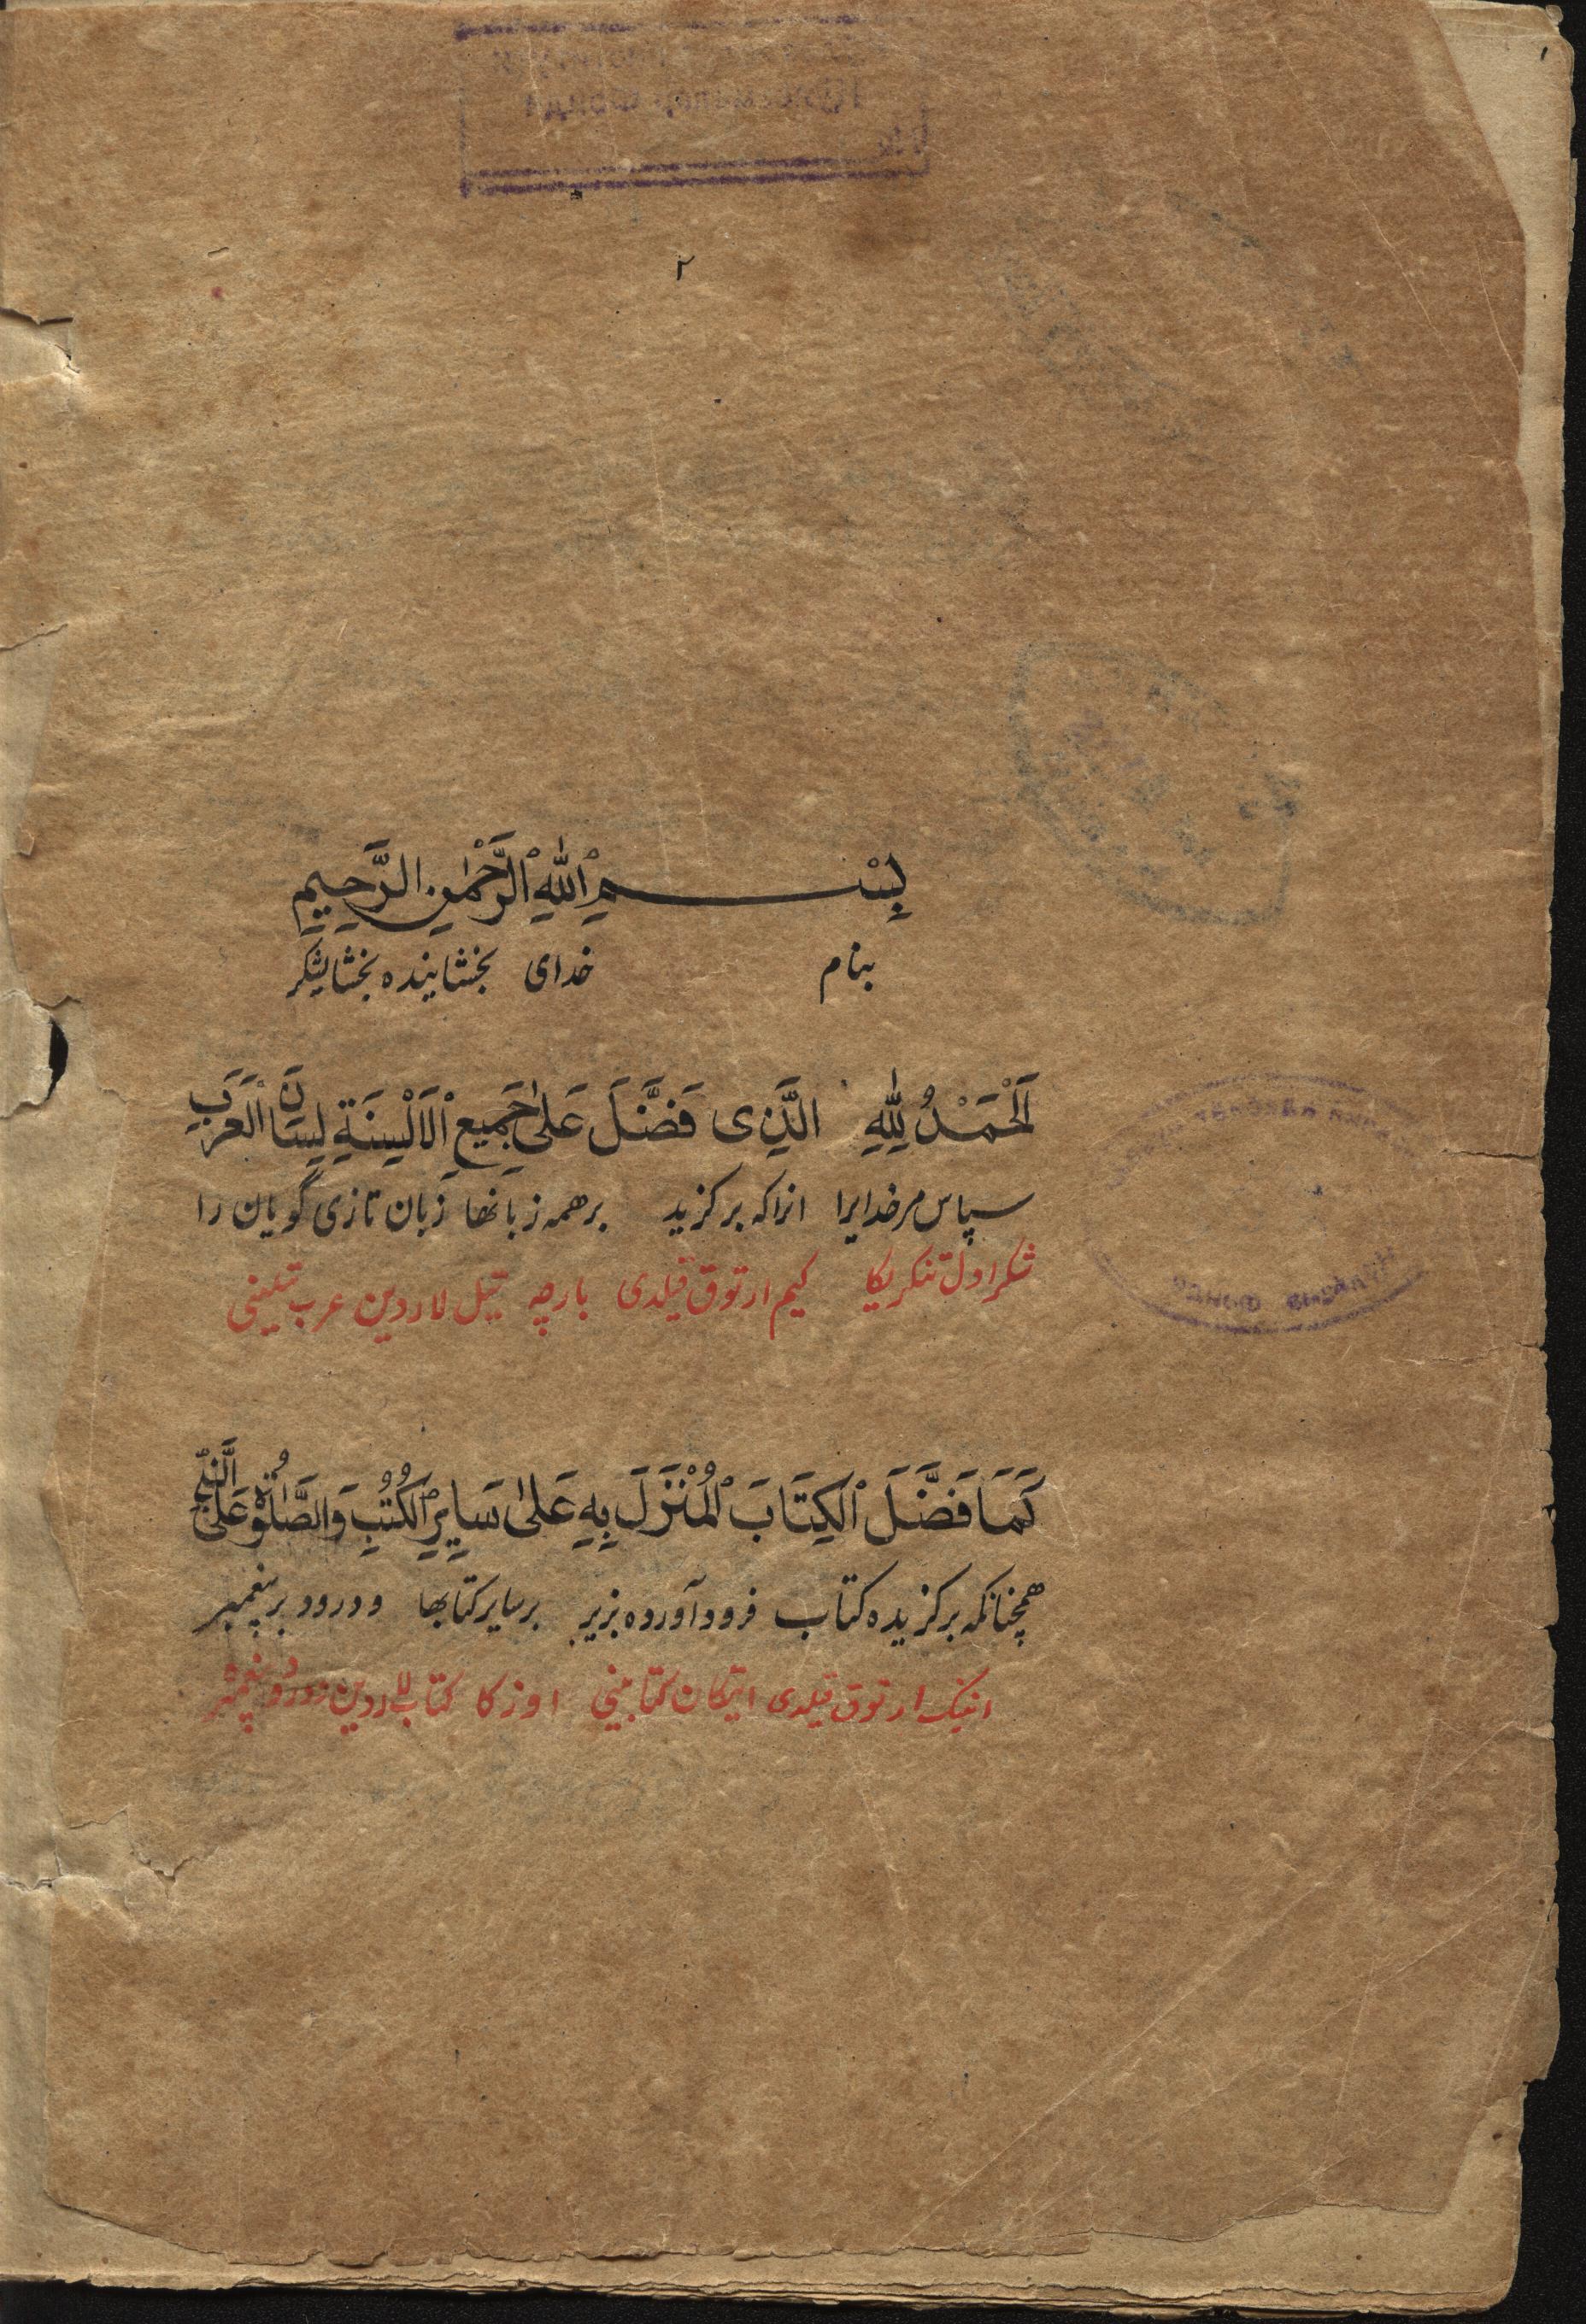 ٢
بِسْمِ ٱللّٰهِ ٱلرَّحْمٰنِ الرَّحِيمِ
بنام خدای بخشاینده بخشایشکر
اَلْحَمْدُ لِلّٰهِ الَّذِى فَضَّلَ عَلىٰ جَمِيعِ ٱلْاَلْسِنَةِ لِسَانَ الْعَرَبِ
سپاس مر خدایرا انراکه برکزید برهمه زبانها زبان تازی گویان را
شکر اول تنکریکا کیم ارتوق قیلدی بارچه تیل لاردین عرب تیلینی
كَمَا فَضَّلَ ٱلْكِتَابَ ٱلْمُنْزَلَ بِهِ عَلىٰ سَايِرِ ٱلْكُتُبِ وَالصَّلٰوةُ عَلَى النَّبِىِّ
همچنانکه برکزیده کتاب فرود آورده بر سایر کتابها و درود بر پیغمبر
انینک ارتوق قیلدی کتابینی اوزکا کتابلاردین درود پیغمبر